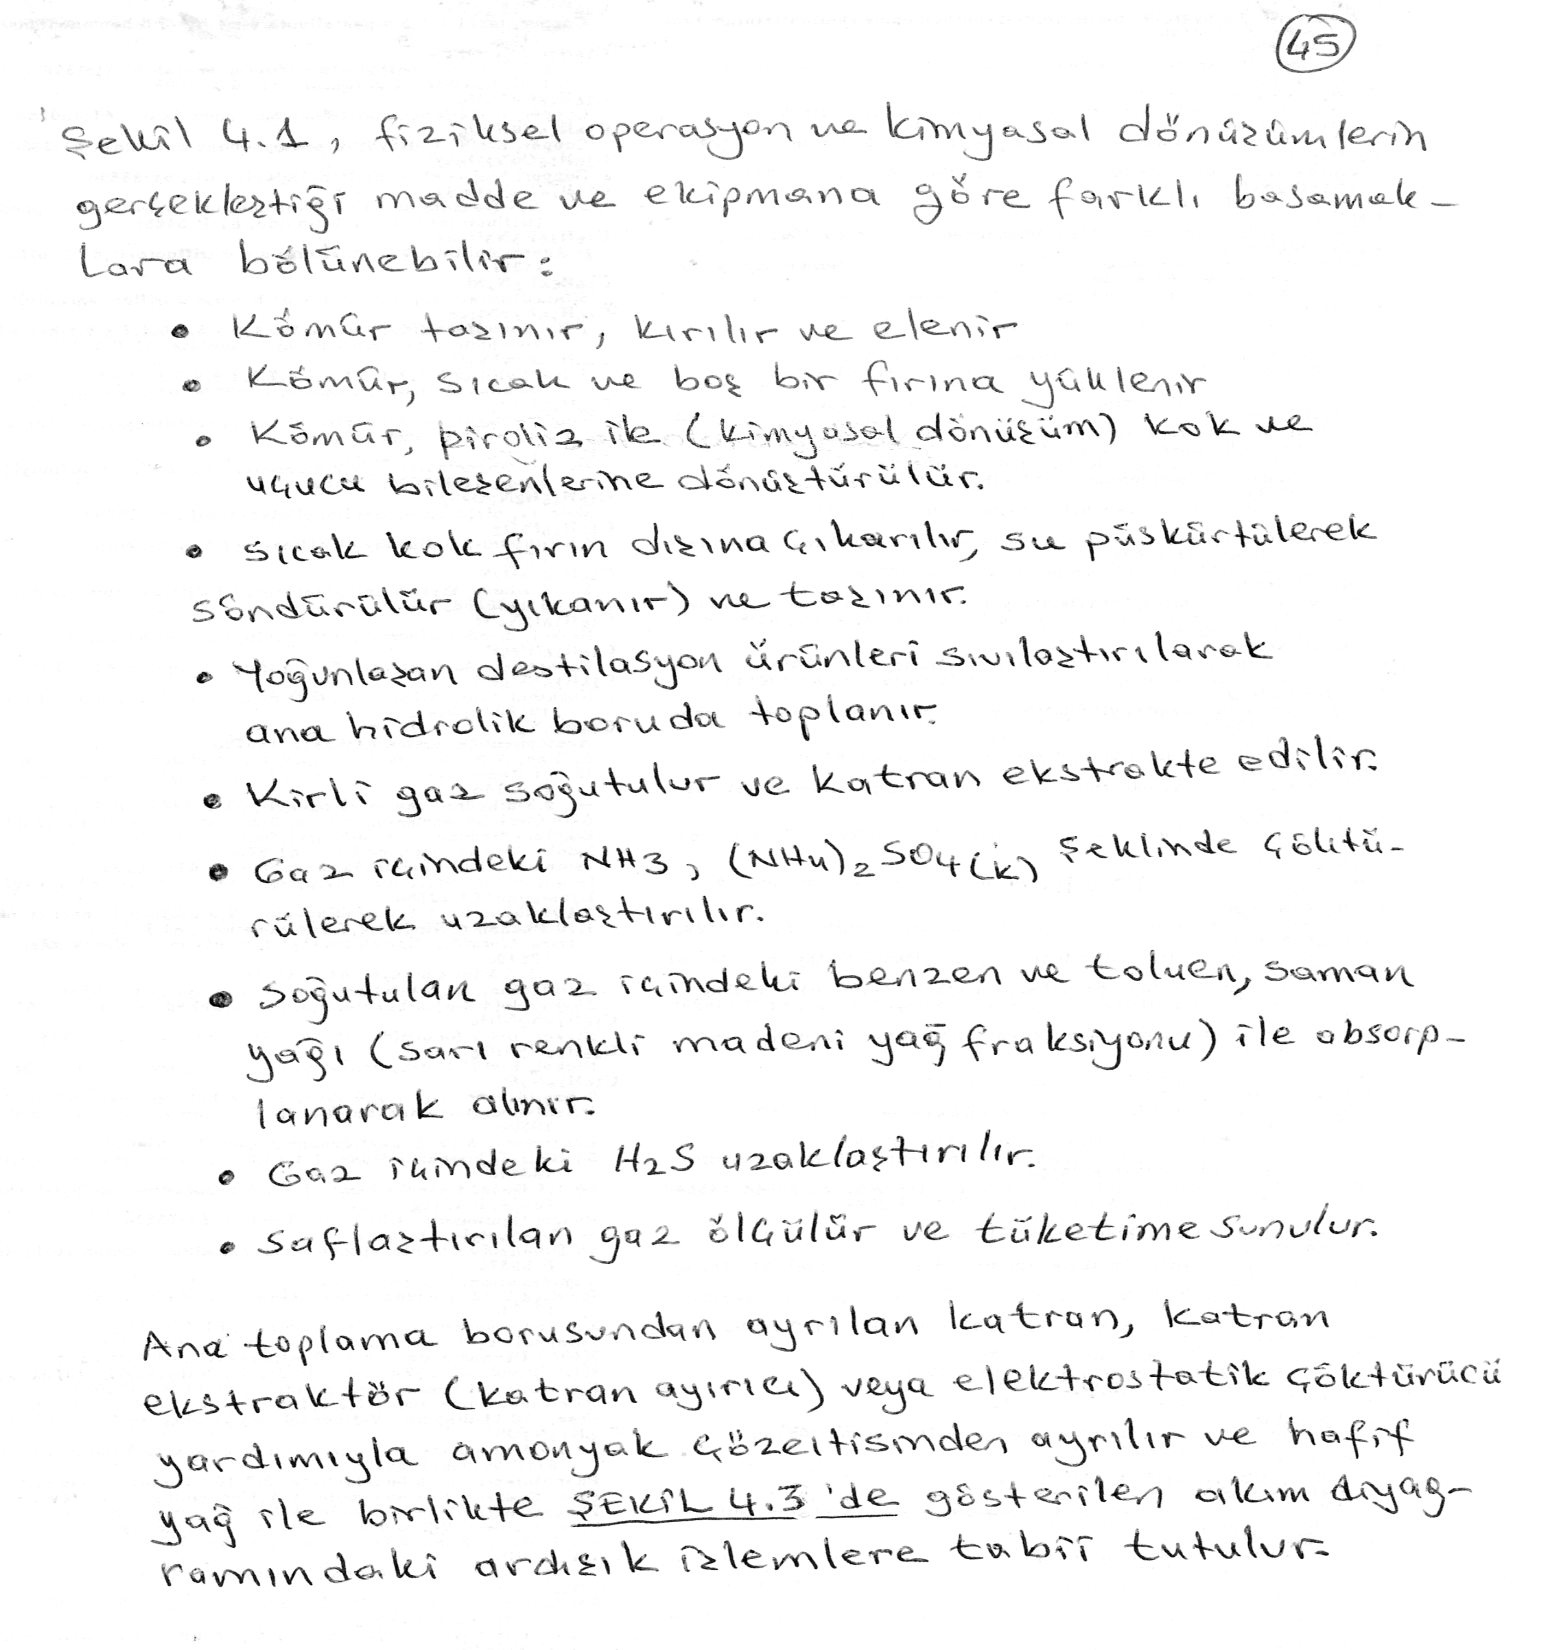 45
Şekil 4.1, fiziksel operasyon ve kimyasal dönüşümlerin
gerçekleştiği madde ve ekipmana göre farklı basamak-
lara bölünebilir:
• Kömür taşınır, kırılır ve elenir
• Kömür, sıcak ve boş bir fırına yüklenir
• Kömür, piroliz ile (kimyasal dönüşüm) kok ve
uçucu bileşenlerine dönüştürülür.
• Sıcak kok fırın dışına çıkarılır, su püskürtülerek
söndürülür (yıkanır) ve taşınır.
• Yoğunlaşan destilasyon ürünleri sıvılaştırılarak
ana hidrolik boruda toplanır.
• Kirli gaz soğutulur ve katran ekstrakte edilir.
• Gaz içindeki NH3, (NH4)2SO4(k) şeklinde çöktü-
rülerek uzaklaştırılır.
• Soğutulan gaz içindeki benzen ve toluen, saman
yağı (sarı renkli madeni yağ fraksiyonu) ile absorp-
lanarak alınır.
• Gaz içindeki H2S uzaklaştırılır.
• Saflaştırılan gaz ölçülür ve tüketime sunulur.
Ana toplama borusundan ayrılan katran, katran
ekstraktör (katran ayırıcı) veya elektrostatik çöktürücü
yardımıyla amonyak çözeltisinden ayrılır ve hafif
yağ ile birlikte ŞEKİL 4.3 'de gösterilen akım diyag-
ramındaki ardışık işlemlere tabii tutulur.